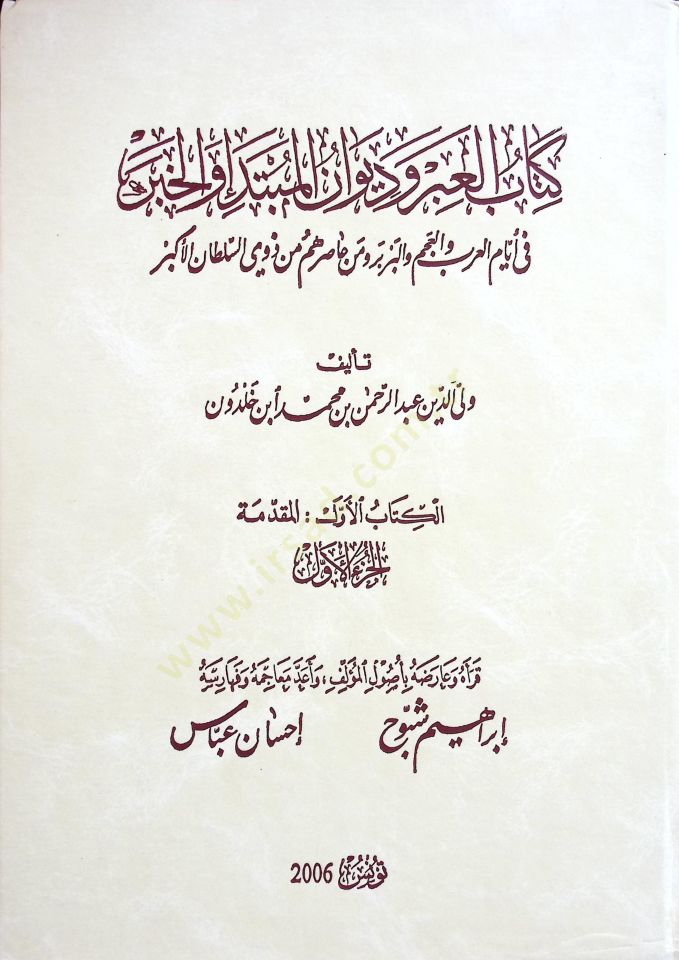 كتاب العبر وديوان المبتدإ والخبر
في أيّام العرب والعجم والبربر ومن عاصرهم من ذوي السّلطان الأكبر
تأليف
وليّ الدّين عبد الرّحمٰن بن محمّد ابن خَلْدُون
الكِتَابُ الأوّل : المقدّمة
الجزء الأوّل
قرَأهُ وعَارضَهُ بأصُولِ المؤلّفِ، وأعَدَّ مَعَاجمَهُ وفهَارسَهُ
إبراهيم شبّوح إحسان عبّاس
تونس 2006
www.irsad.com.tr